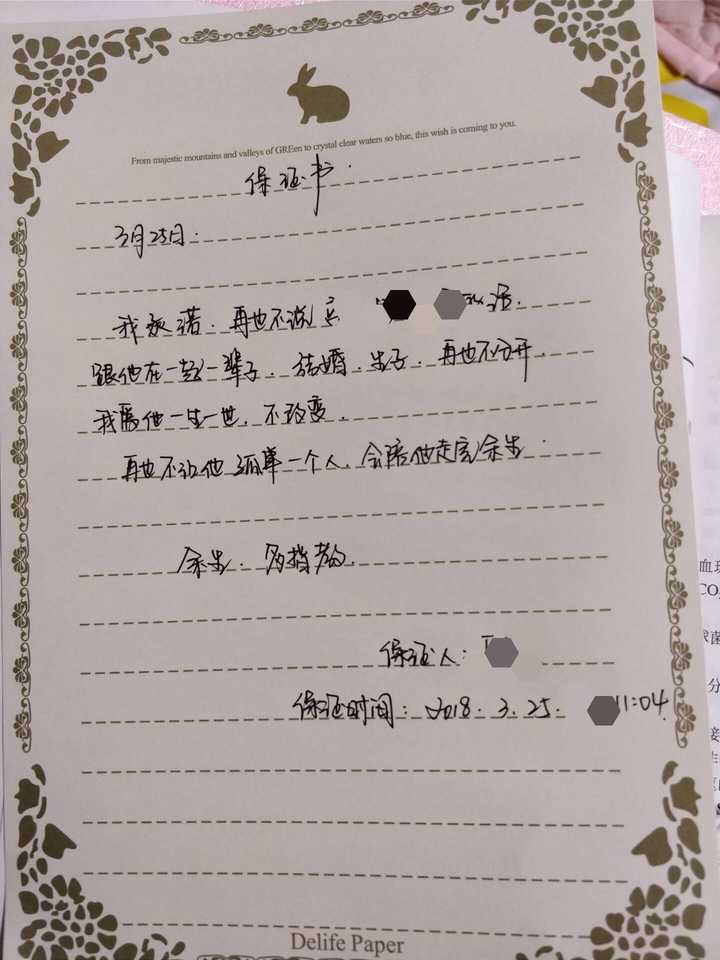 From majestic mountains and valleys of GREen to crystal clear waters so blue, this wish is coming to you.
保证书.
3月25日.
我承诺.再也不说 话.
跟他在一起一辈子.结婚.生子.再也不分开.
我陪他一生一世.不改变.
再也不让他孤单一个人.会陪他走完余生.
余生.多指教.
保证人:
保证时间:2018.3.25. 11:04.
Delife Paper
血
CO
菌
分
接